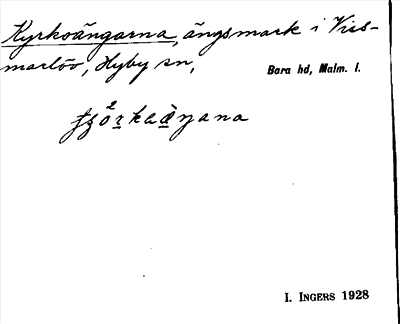 Kyrkoängarna, ängsmark i Viss-
marlöv, Hyby sn,
Bara hd, Malm. l.
I. INGERS 1928